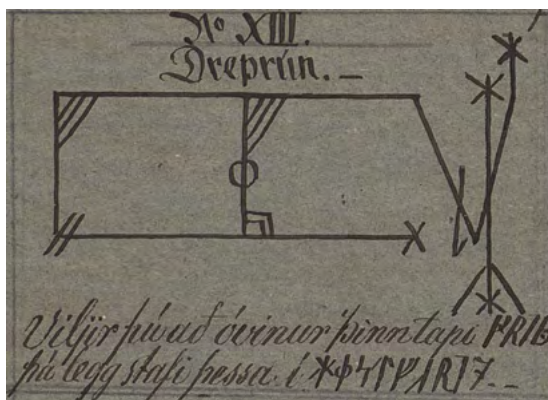 No XIII.
Dreprún. —
Viljir þú að óvinur þinn tapi
þá legg stafi þessa í